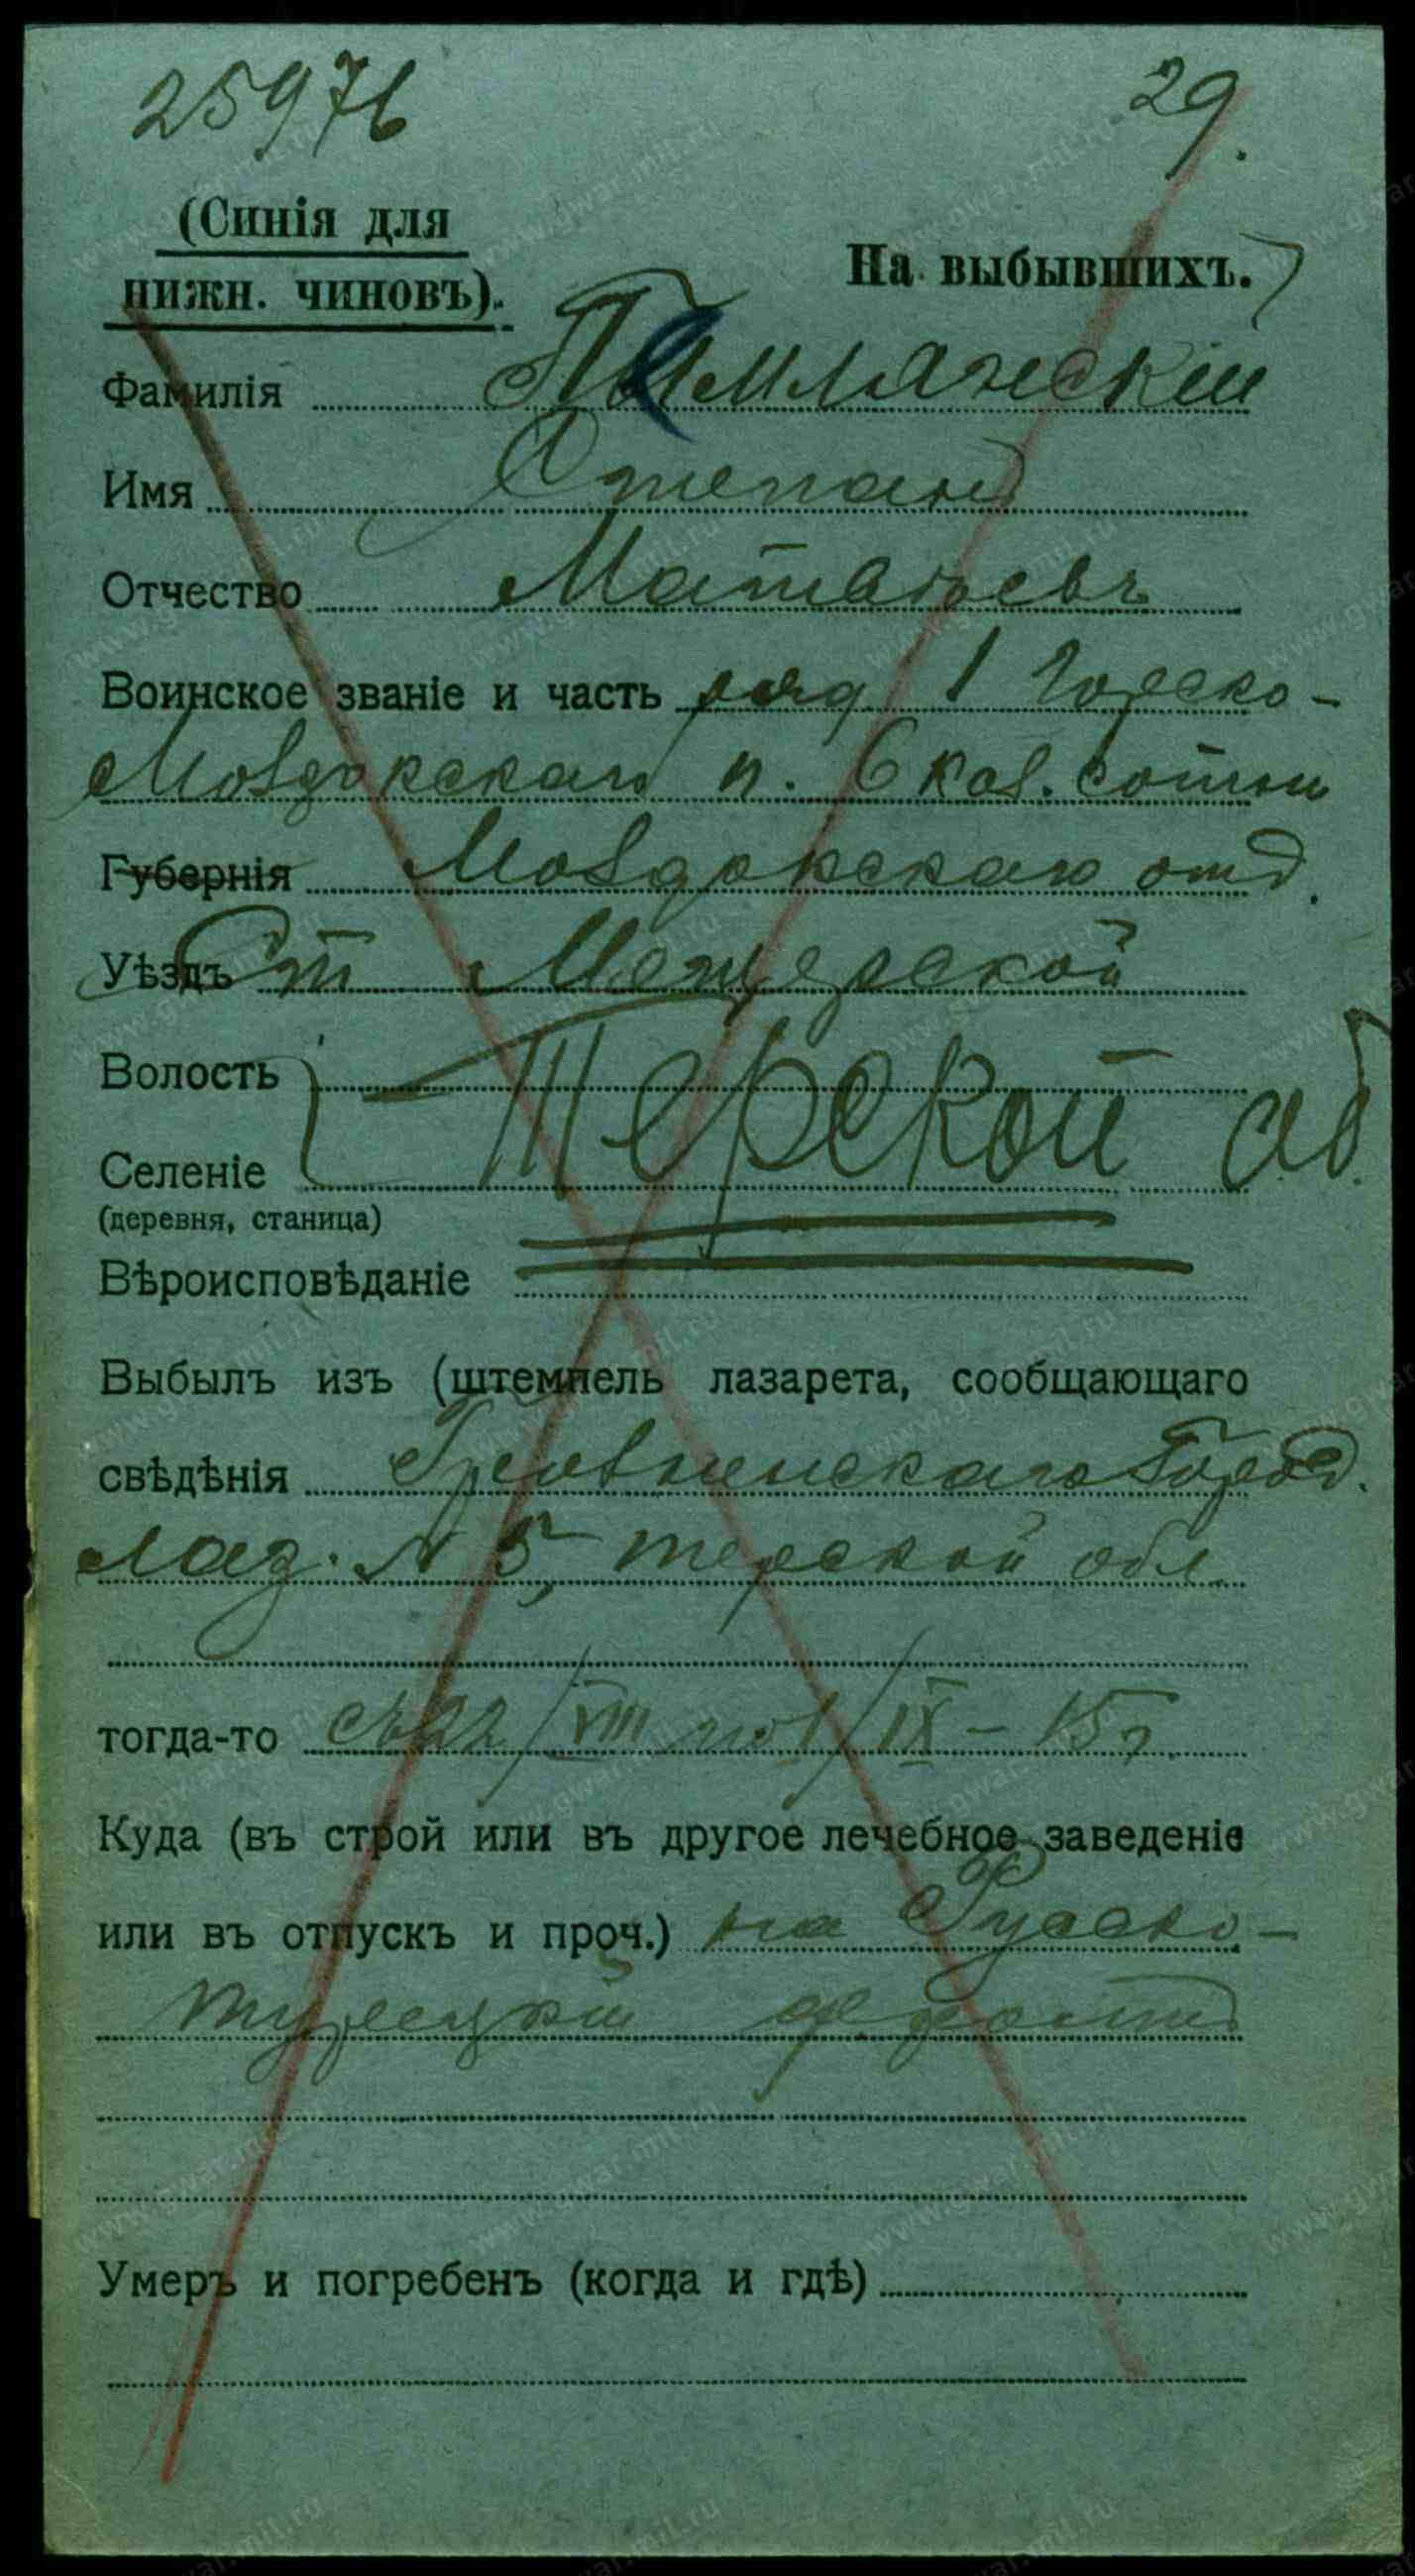 25976
29.
(Синія для
нижн. чиновъ).
На выбывшихъ.
Фамилія
Имя Степанъ
Отчество Матвѣевъ
Воинское званіе и часть ряд 1 Горско-
Моздокскаго п. 6 каз. сотни
Губернія Моздокскаго отд.
Уѣздъ Ст Мещерской
Волость
Терской об
Селеніе
(деревня, станица)
Вѣроисповѣданіе
Выбылъ изъ (штемпель лазарета, сообщающаго
свѣдѣнія Город.
Лаз. N 5, терской обл
тогда-то съ 22/VIII по 1/IX - 15 г
Куда (въ строй или въ другое лечебное заведеніе
или въ отпускъ и проч.) на Русско-
турецкій фронтъ
Умеръ и погребенъ (когда и гдѣ)